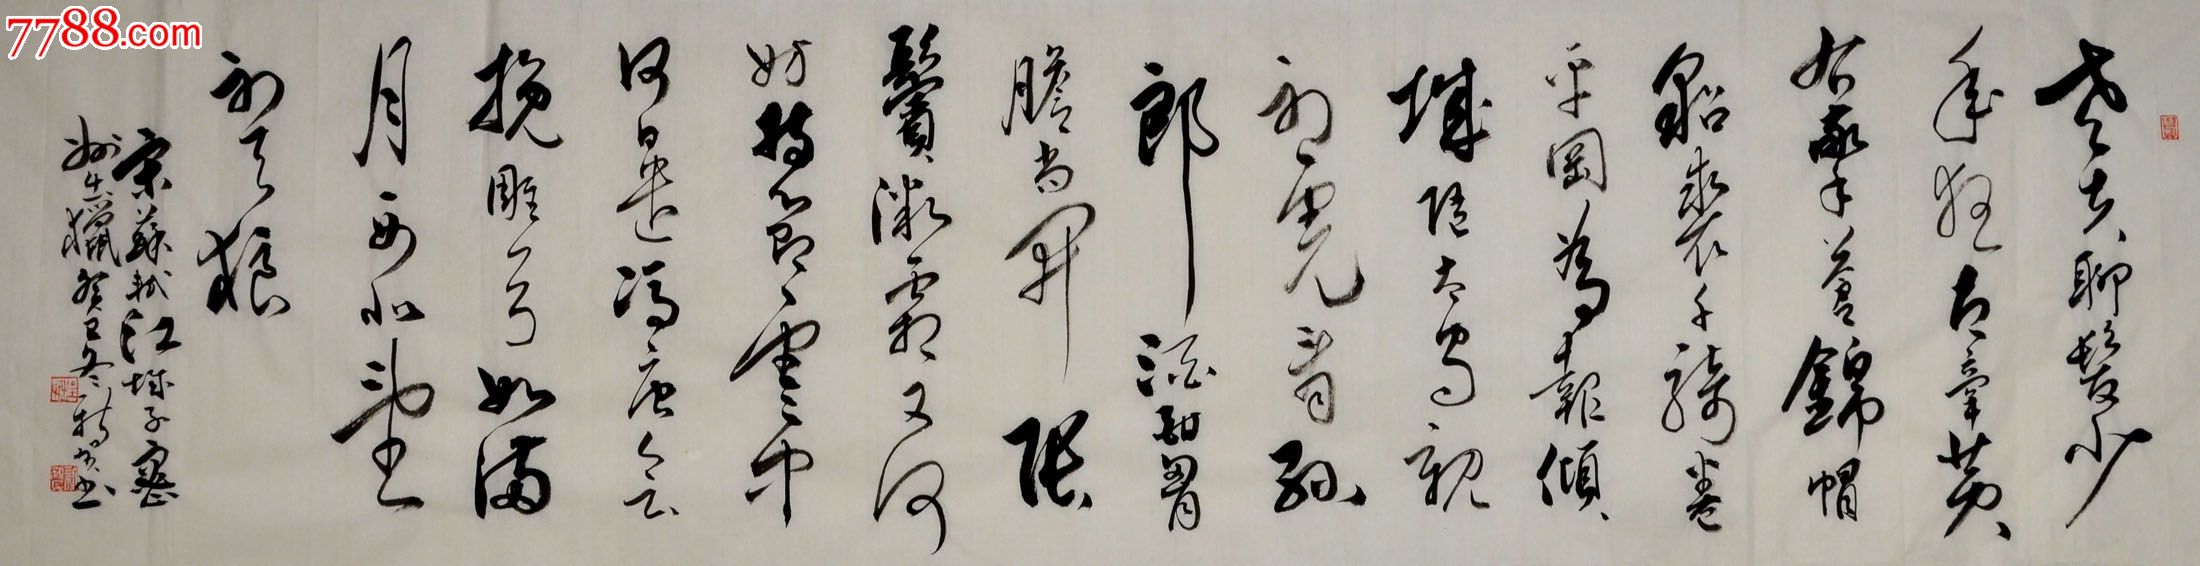 7788.com
老夫聊發少
年狂左牽黃
右擎蒼錦帽
貂裘千騎卷
平岡為報傾
城隨太守親
射虎看孫
郎酒酣胸
膽尚開張
鬢微霜又何
妨持節雲中
何日遣馮唐會
挽雕弓如滿
月西北望
射天狼
宋蘇軾江城子密
州出獵癸巳冬書